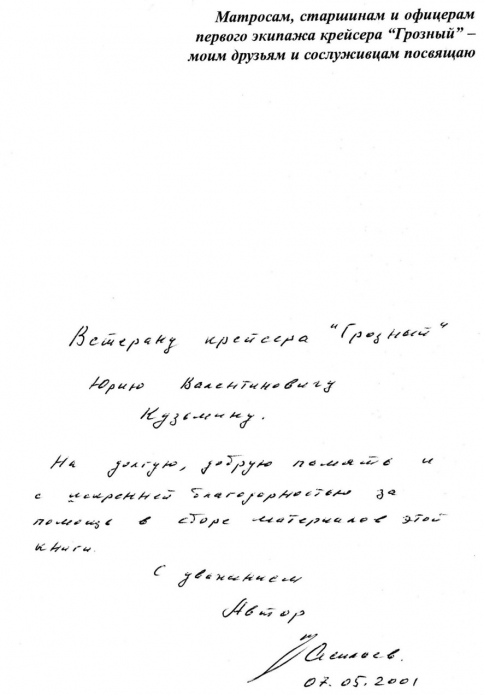 Матросам, старшинам и офицерам
первого экипажа крейсера “Грозный” –
моим друзьям и сослуживцам посвящаю
Ветерану крейсера "Грозный"
Юрию Валентиновичу
Кузьмину.
На долгую, добрую память и
с искренней благодарностью за
помощь в сборе материалов этой
книги.
С уважением
Автор
07.05.2001